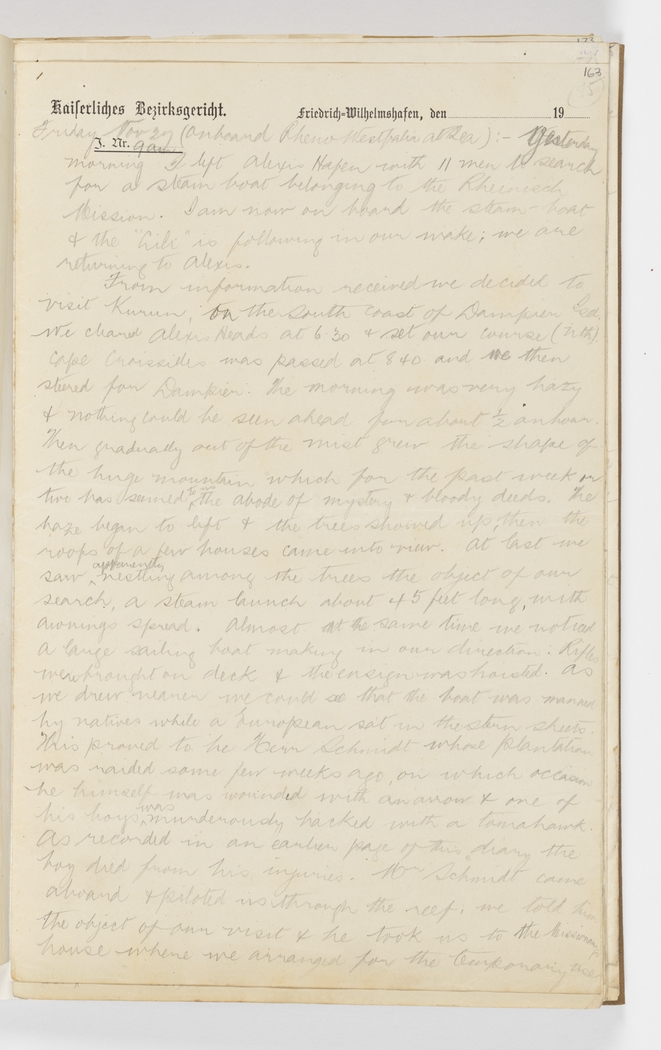 163
Kaiserliches Bezirksgericht. Friedrich-Wilhelmshafen, den 19
Friday Nov 27 (on board Rheno Westfahr at sea) :- Yesterday
J. Nr. 9 am
morning I left Alexis Hafen with 11 men to search
for a steam boat belonging to the Rheenisch
Mission. I am now on board the steam-boat
& the "Gili" is following in our wake; we are
returning to Alexis.
From information received we decided to
visit Kurum, on the South Coast of Dampier Isd.
We cleared Alexis Heads at 6.30 & set our course (Nth).
Cape Croissilles was passed at 8 40 and we then
steered for Dampier. The morning was very hazy
& nothing could be seen ahead for about ½ an hour.
Then gradually out of the mist grew the shape of
the huge mountain which for the past week or
two has seemed to us the abode of mystery & bloody deeds. The
haze began to lift & the trees showed up, then the
roofs of a few houses came into view. At last we
saw apparently nestling among the trees the object of our
search, a steam launch about 45 feet long, with
awnings spread. Almost at the same time we noticed
a large sailing boat making in our direction. Rifles
were brought on deck & the ensign was hoisted. As
we drew nearer we could see that the boat was manned
by natives while a European sat in the stern sheets.
This proved to be Herr Schmidt whose plantation
was raided some few weeks ago, on which occasion
he himself was wounded with an arrow & one of
his boys was murderously hacked with a tomahawk.
As recorded in an earlier page of this diary the
boy died from his injuries. Mr Schmidt came
aboard & piloted us through the reef; we told him
the object of our visit & he took us to the Missionary's
house where we arranged for the temporary use